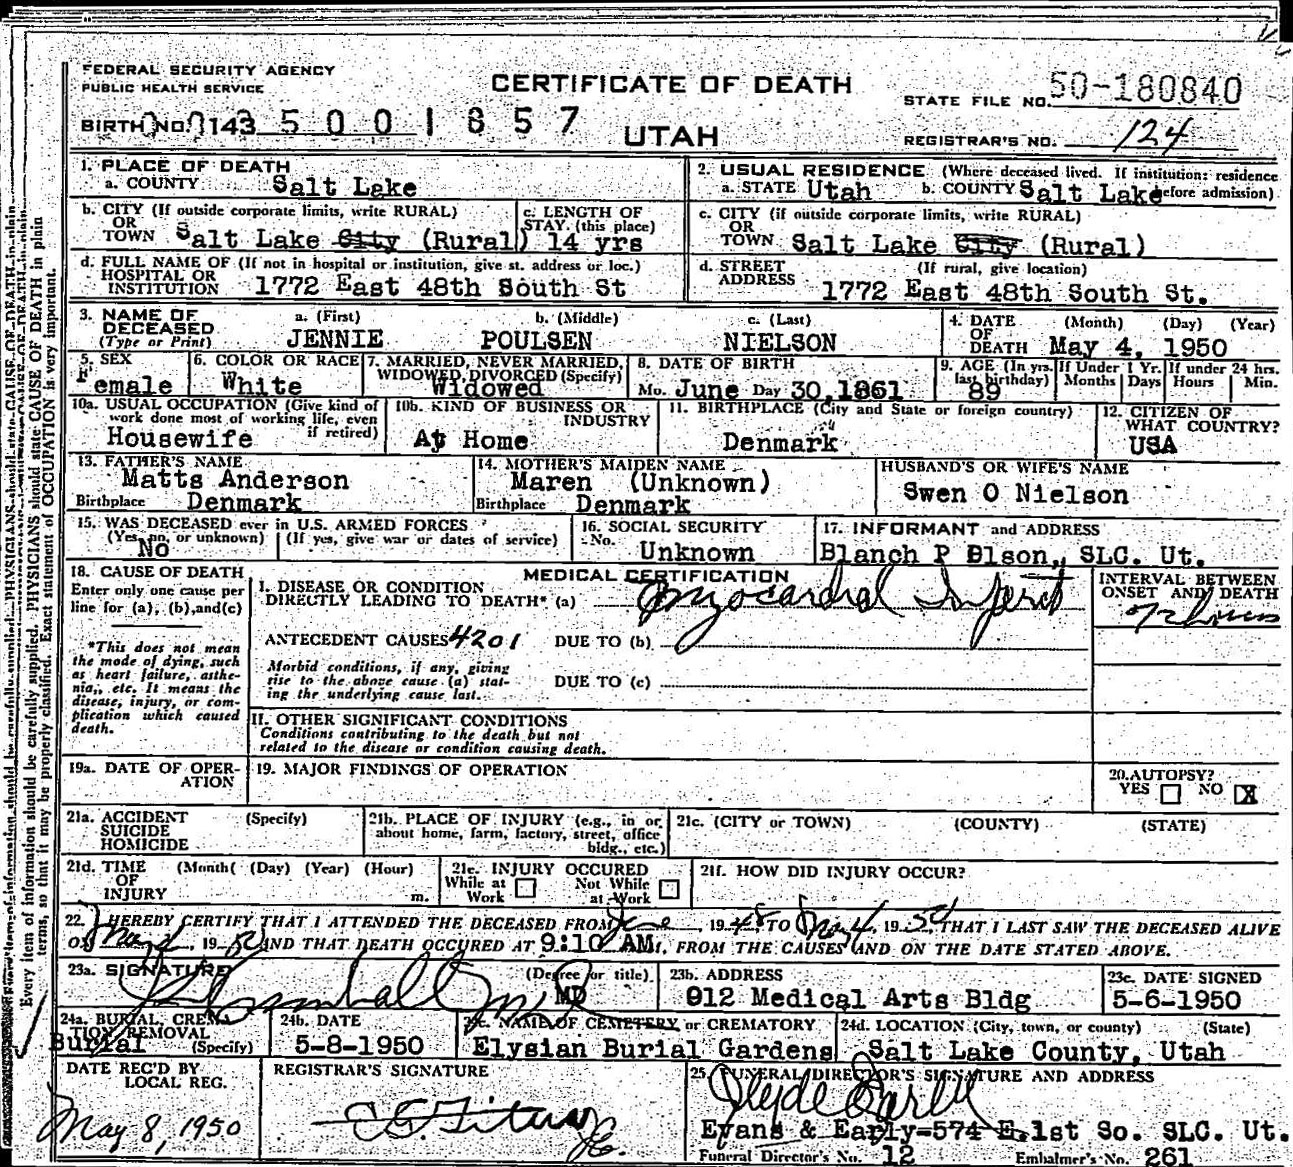 FEDERAL SECURITY AGENCY
PUBLIC HEALTH SERVICE
CERTIFICATE OF DEATH
STATE FILE NO. 50-180840
BIRTH NO. 143 5001857
UTAH
REGISTRAR'S NO. 124
1. PLACE OF DEATH
a. COUNTY Salt Lake
2. USUAL RESIDENCE (Where deceased lived. If institution: residence
a. STATE Utah b. COUNTY Salt Lake before admission)
b. CITY (If outside corporate limits, write RURAL)
OR
TOWN Salt Lake City (Rural)
c. LENGTH OF
STAY (this place)
14 yrs
c. CITY (if outside corporate limits, write RURAL)
OR
TOWN Salt Lake City (Rural)
d. FULL NAME OF (If not in hospital or institution, give st. address or loc.)
HOSPITAL OR
INSTITUTION 1772 East 48th South St
d. STREET (If rural, give location)
ADDRESS 1772 East 48th South St.
3. NAME OF a. (First) b. (Middle) c. (Last)
DECEASED
(Type or Print) JENNIE POULSEN NIELSON
4. DATE (Month) (Day) (Year)
OF
DEATH May 4, 1950
5. SEX
Female
6. COLOR OR RACE
White
7. MARRIED, NEVER MARRIED,
WIDOWED, DIVORCED (Specify)
Widowed
8. DATE OF BIRTH
Mo. June Day 30, 1861
9. AGE (In yrs. last birthday)
89
If Under 1 Yr.
Months Days
If under 24 hrs.
Hours Min.
10a. USUAL OCCUPATION (Give kind of
work done most of working life, even
if retired)
Housewife
10b. KIND OF BUSINESS OR
INDUSTRY
At Home
11. BIRTHPLACE (City and State or foreign country)
Denmark
12. CITIZEN OF
WHAT COUNTRY?
USA
13. FATHER'S NAME
Matts Anderson
Birthplace Denmark
14. MOTHER'S MAIDEN NAME
Maren (Unknown)
Birthplace Denmark
HUSBAND'S OR WIFE'S NAME
Swen O Nielson
15. WAS DECEASED ever in U.S. ARMED FORCES
(Yes, no, or unknown) (If yes, give war or dates of service)
No
16. SOCIAL SECURITY
No.
Unknown
17. INFORMANT and ADDRESS
Blanch P Elson, SLC. Ut.
18. CAUSE OF DEATH
Enter only one cause per
line for (a), (b), and (c)
*This does not mean
the mode of dying, such
as heart failure, asthe-
nia, etc. It means the
disease, injury, or com-
plication which caused
death.
MEDICAL CERTIFICATION
I. DISEASE OR CONDITION
DIRECTLY LEADING TO DEATH* (a) Myocardial
ANTECEDENT CAUSES 4201 DUE TO (b)
Morbid conditions, if any, giving
rise to the above cause (a) stat-
ing the underlying cause last.
DUE TO (c)
INTERVAL BETWEEN
ONSET AND DEATH
72 hours
II. OTHER SIGNIFICANT CONDITIONS
Conditions contributing to the death but not
related to the disease or condition causing death.
19a. DATE OF OPER-
ATION
19. MAJOR FINDINGS OF OPERATION
20. AUTOPSY?
YES NO X
21a. ACCIDENT (Specify)
SUICIDE
HOMICIDE
21b. PLACE OF INJURY (e.g., in or
about home, farm, factory, street, office
bldg., etc.)
21c. (CITY or TOWN) (COUNTY) (STATE)
21d. TIME (Month( (Day) (Year) (Hour)
OF
INJURY m.
21e. INJURY OCCURED
While at Work Not While at Work
21f. HOW DID INJURY OCCUR?
22. I HEREBY CERTIFY THAT I ATTENDED THE DECEASED FROM June, 1948 TO May 4, 1950, THAT I LAST SAW THE DECEASED ALIVE
ON May 4, 1950 AND THAT DEATH OCCURED AT 9:10 AM., FROM THE CAUSES AND ON THE DATE STATED ABOVE.
23a. SIGNATURE (Degree or title)
MD
23b. ADDRESS
912 Medical Arts Bldg
23c. DATE SIGNED
5-6-1950
24a. BURIAL, CREMA-
TION, REMOVAL
Burial (Specify)
24b. DATE
5-8-1950
24c. NAME OF CEMETERY or CREMATORY
Elysian Burial Gardens
24d. LOCATION (City, town, or county) (State)
Salt Lake County, Utah
DATE REC'D BY
LOCAL REG.
May 8, 1950
REGISTRAR'S SIGNATURE
25. FUNERAL DIRECTOR'S SIGNATURE AND ADDRESS
Evans & Early-574 E.1st So. SLC. Ut.
Funeral Director's No. 12 Embalmer's No. 261
Every item of information should be carefully supplied. PHYSICIANS should state CAUSE OF DEATH in plain
terms, so that it may be properly classified. Exact statement of OCCUPATION is very important.